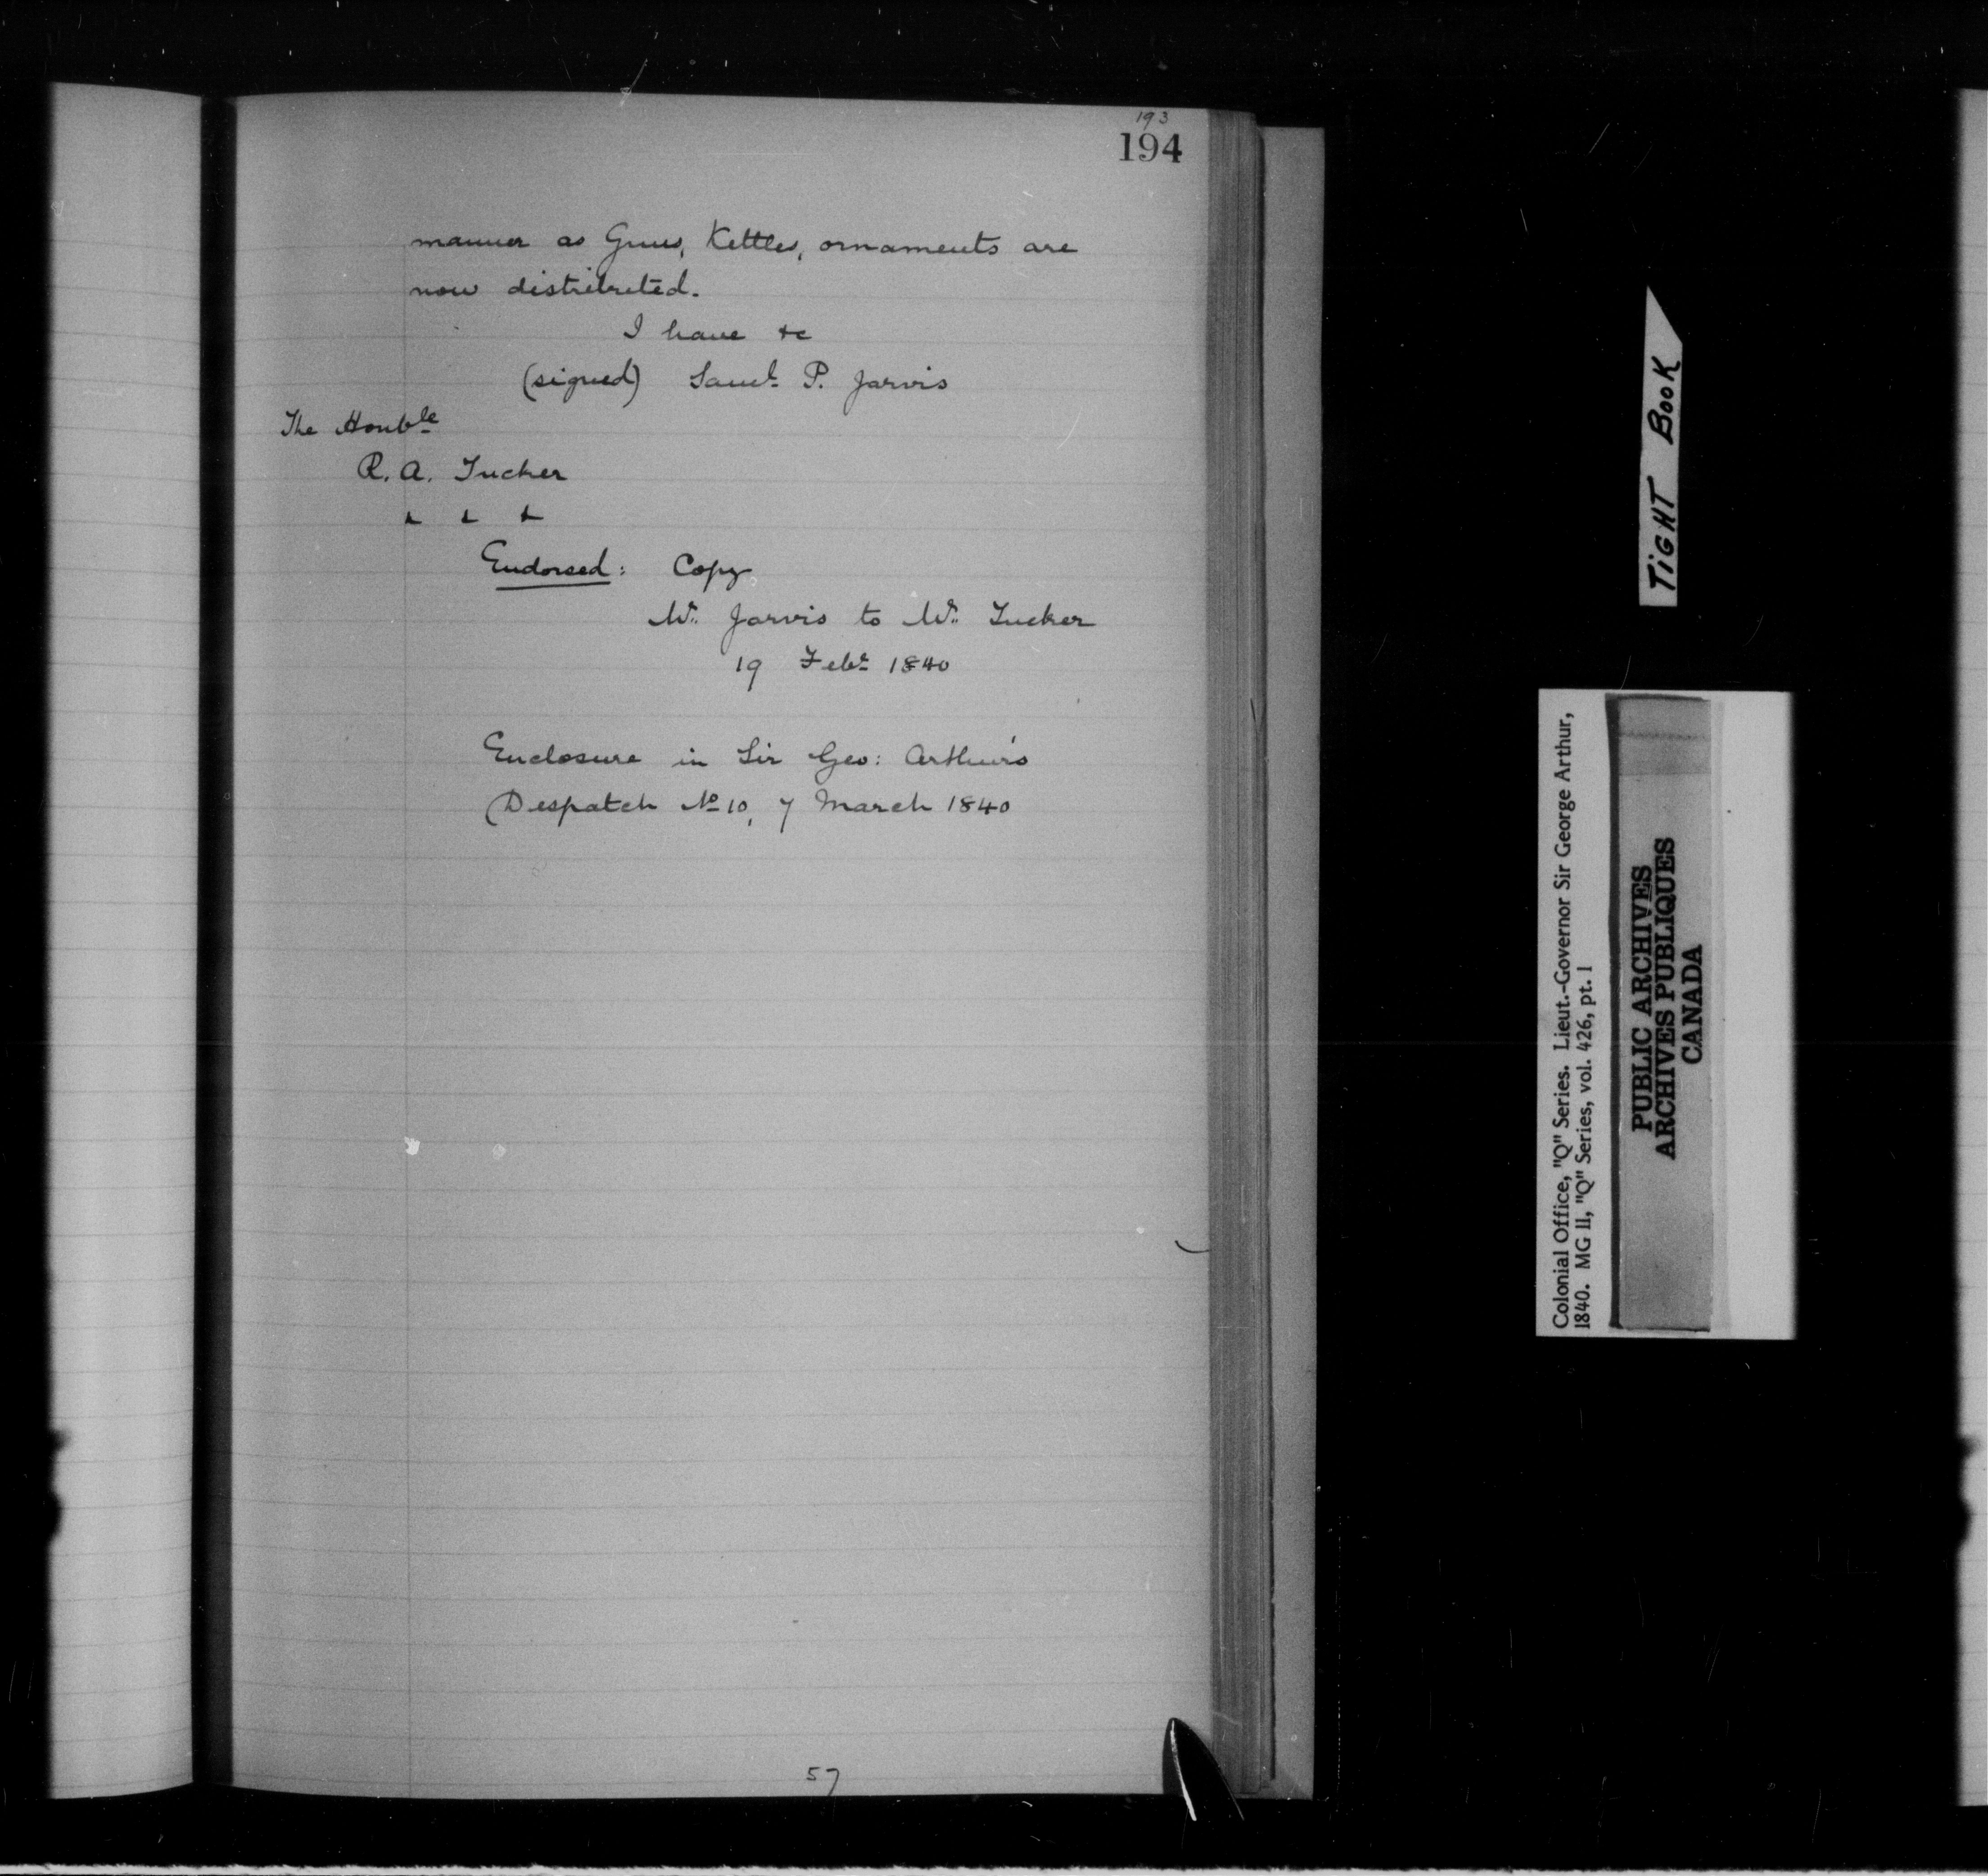 193
194
manner as Guns, Kettles, ornaments are
now distributed.
I have &c
(signed) Saml. P. Jarvis
The Honble
R. A. Tucker
& & &
Endorsed: Copy
Mr. Jarvis to Mr. Tucker
19 Febr 1840
Enclosure in Sir Geo: Arthur's
Despatch No 10, 7 March 1840
57
TIGHT BOOK
Colonial Office, "Q" Series. Lieut.-Governor Sir George Arthur,
1840. MG 11, "Q" Series, vol. 426, pt. 1
PUBLIC ARCHIVES
ARCHIVES PUBLIQUES
CANADA